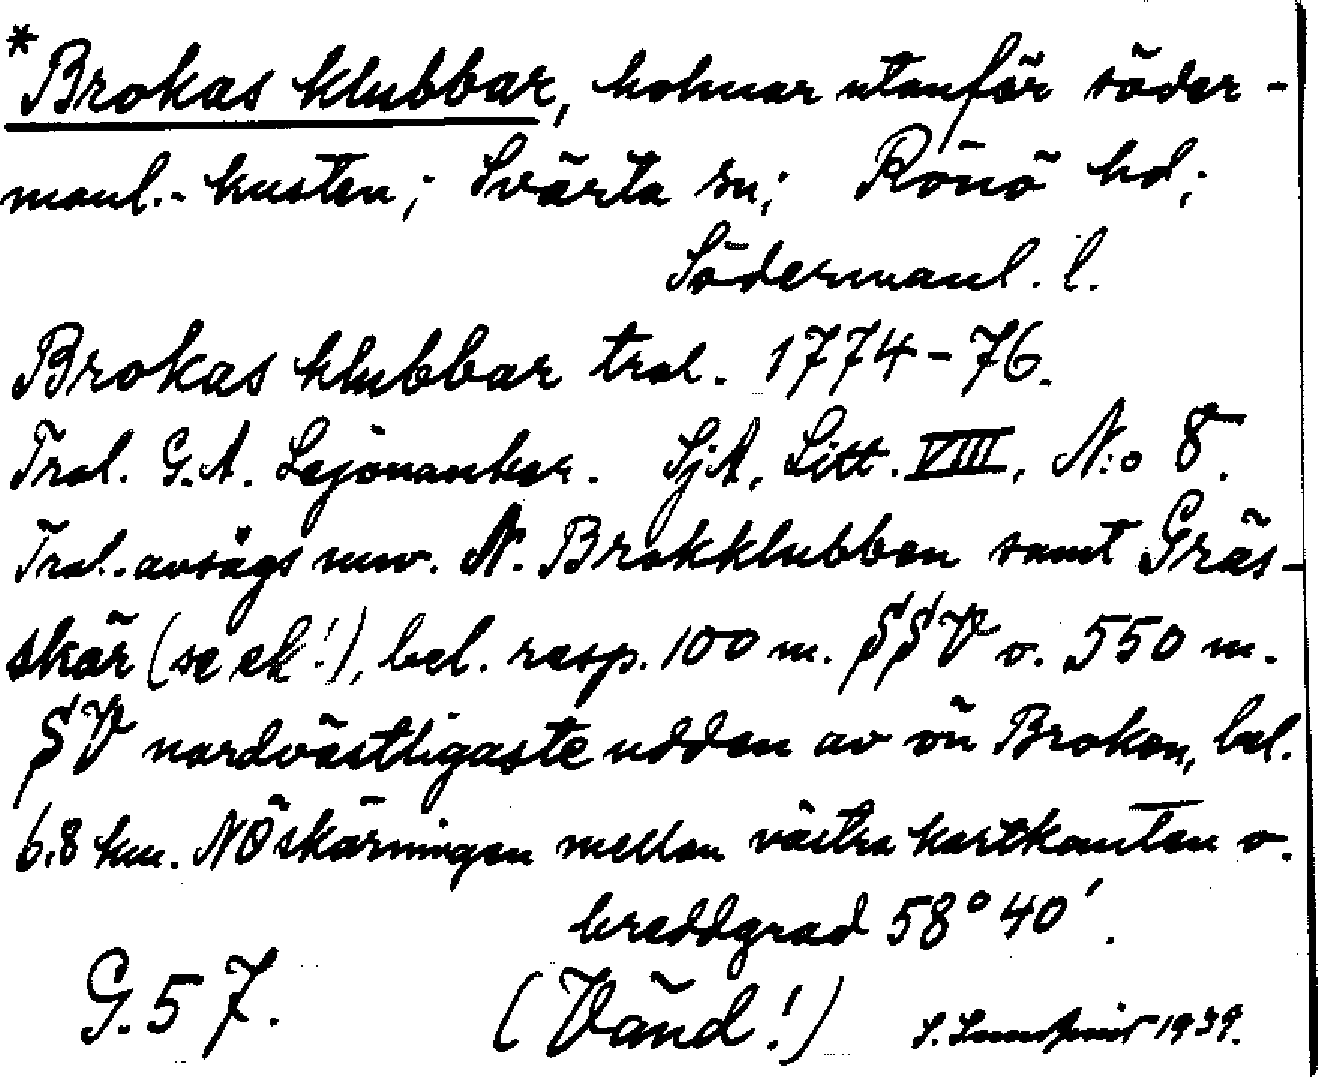 *Brokas klubbar, holmar utanför söder-
manl.-kusten; Svärta sn; Rönö hd;
Södermanl. l.
Brokas klubbar tral. 1774-76.
Tral. G.A. Lejonanker. SjA, Litt. VIII, N:o 8.
Tral. avsågs nuv. N. Brokklubben samt Gräs-
skär (se ek!), bel. resp. 100 m. SSV o. 550 m.
SV nordvästligaste udden av ön Broken, bel.
6.8 km. NÖ skärningen mellan västra kartkanten o.
breddgrad 58° 40'.
G. 57. (Vänd!) 1939.